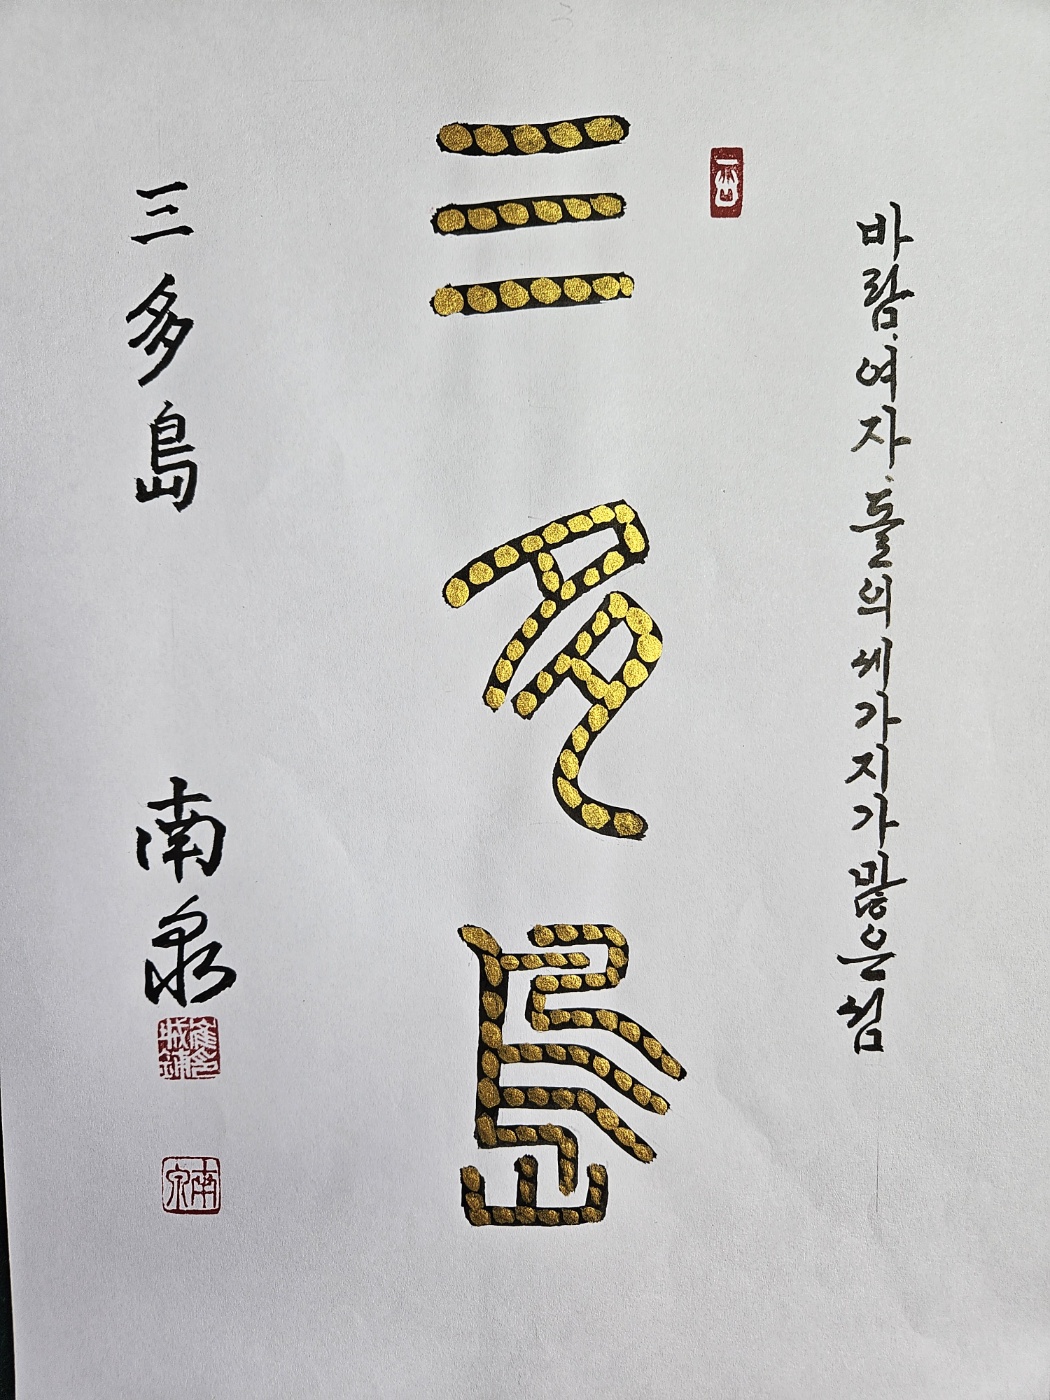 바람·여자·돌의 세가지가 많은 섬
三多島
三多島
南泉
南泉